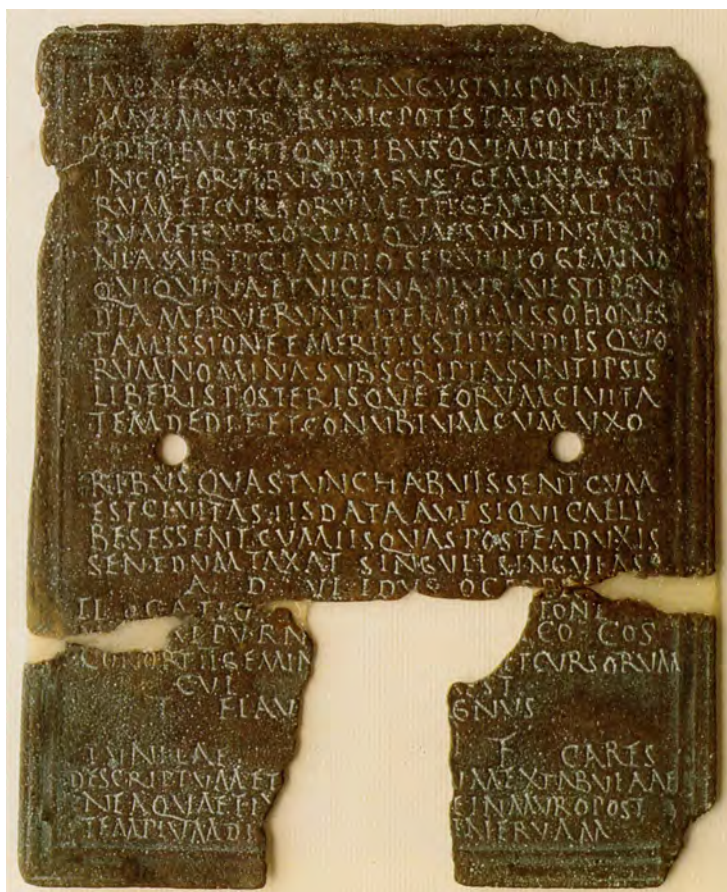 IMP NERVA CAESAR AVGVSTVS PONTIFEX
MAXIMVS TRIBVNIC POTESTAT COS II P P
PEDITIBVS ET EQVITIBVS QVI MILITANT
IN COHORTIBVS DVABVS I GEMINA SARDO
RVM ET CVRSORVM ET II GEMINA LIGV
RVM ET CVRSORVM QVAE SVNT IN SARDI
NIA SVB TI CLAVDIO SERVILIO GEMINO
QVI QVINA ET VICENA PLVRAVE STIPEN
DIA MERVERVNT ITEM DIMISSO HONES
TA MISSIONE EMERITIS STIPENDIIS QVO
RVM NOMINA SVBSCRIPTA SVNT IPSIS
LIBERIS POSTERISQVE EORVM CIVITA
TEM DEDIT ET CONVBIVM CVM VXO
RIBVS QVAS TVNC HABVISSENT CVM
EST CIVITAS IIS DATA AVT SIQVI CAELI
BES ESSENT CVM IIS QVAS POSTEA DVXIS
SENT DVMTAXAT SINGVLI SINGVLAS
A D VI IDVS OCT
COHORT II GEMIN ET CVRSORVM
CVI
T FLAV GNVS
F CARES
DESCRIPTVM ET IM EX TABVLA AE
NEA QVAE FI E IN MVRO POST
TEMPLVM DI INERVAM